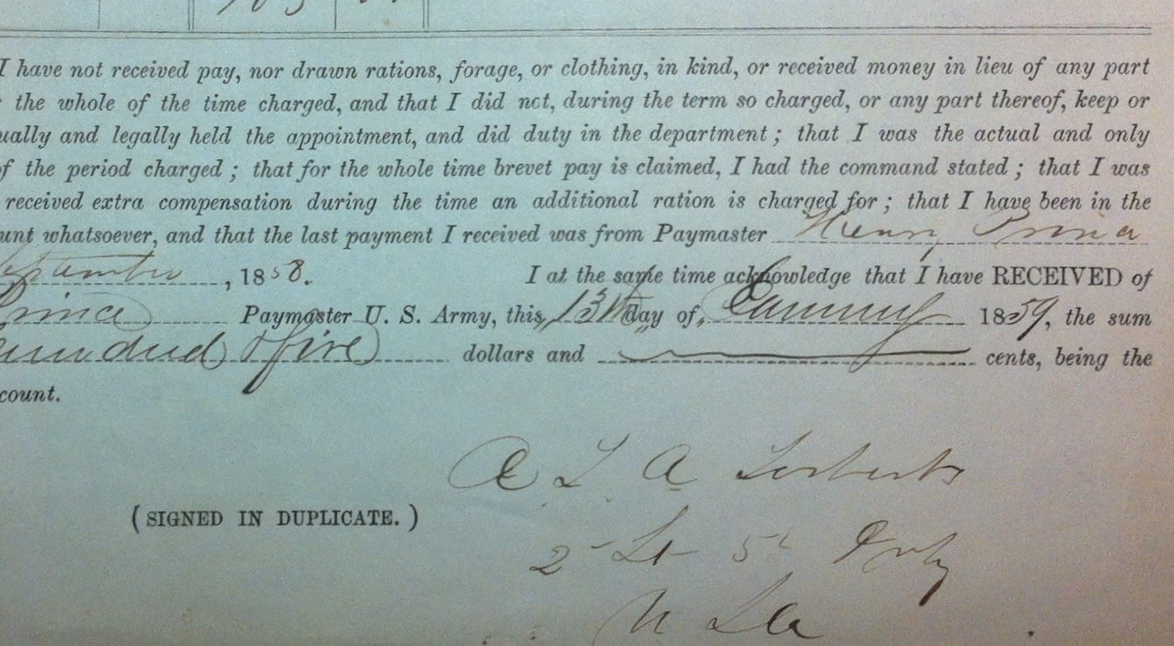 I have not received pay, nor drawn rations, forage, or clothing, in kind, or received money in lieu of any part
the whole of the time charged, and that I did not, during the term so charged, or any part thereof, keep or
ually and legally held the appointment, and did duty in the department; that I was the actual and only
f the period charged; that for the whole time brevet pay is claimed, I had the command stated; that I was
received extra compensation during the time an additional ration is charged for; that I have been in the
unt whatsoever, and that the last payment I received was from Paymaster Henry Prince
eptember, 1858. I at the same time acknowledge that I have RECEIVED of
Prince Paymaster U. S. Army, this 13th day of, January 1859, the sum
hundred & five dollars and cents, being the
count.
A T A Torbert
(SIGNED IN DUPLICATE.)
2 Lt 5th Infty
U S A